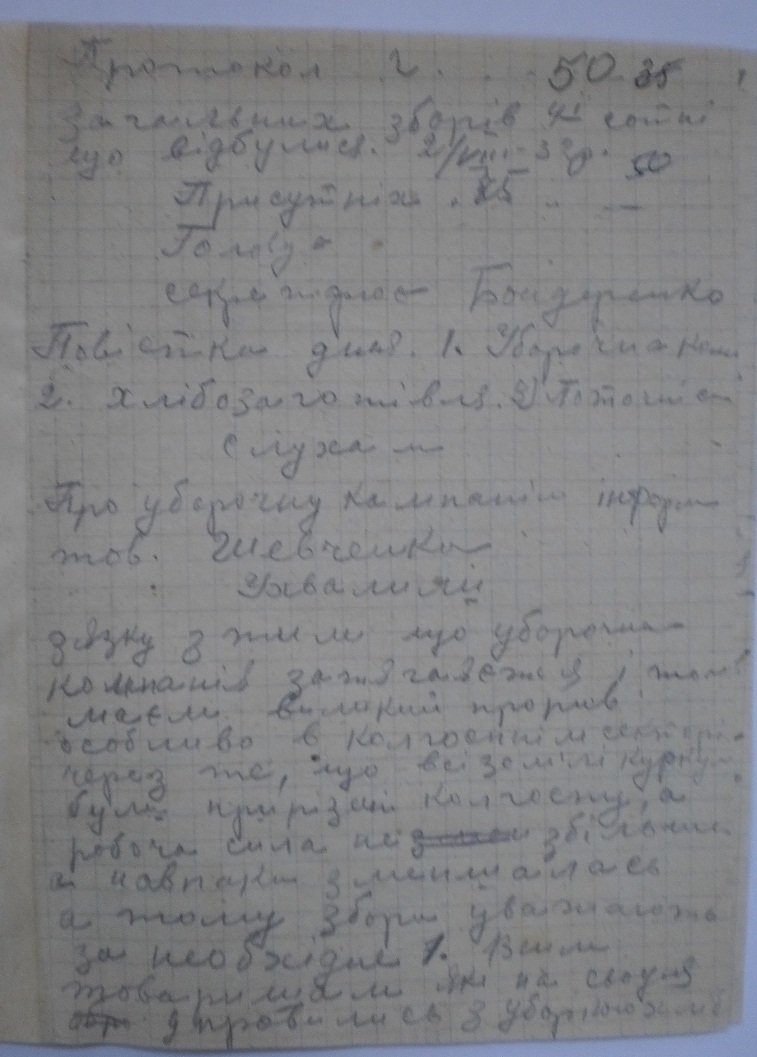 Протокол 2. 50 35
Загальних зборів 4ї сотні
що відбулись. 2/VIII-32р. 50
Присутніх. 85
Голову
секретарює Бондаренко
Повістка дня. 1. Уборочна кам.
2. хлібозаготівля. 2) Поточні сп
Слухали
Про уборочну кампанію інформ
тов. Шевченка
Ухвалили
звязку з тим що уборочна
компанія затягається і тому
маємо великий прорив
особливо в колгоспнім секторі
через те, що всі землі куркул
були прирізані колгоспу, а
робоча сила не збільши
а навпаки зменшилась
а тому збори уважають
за необхідне 1. Всим
товаришам які на своїй
управились з уборкою хліб